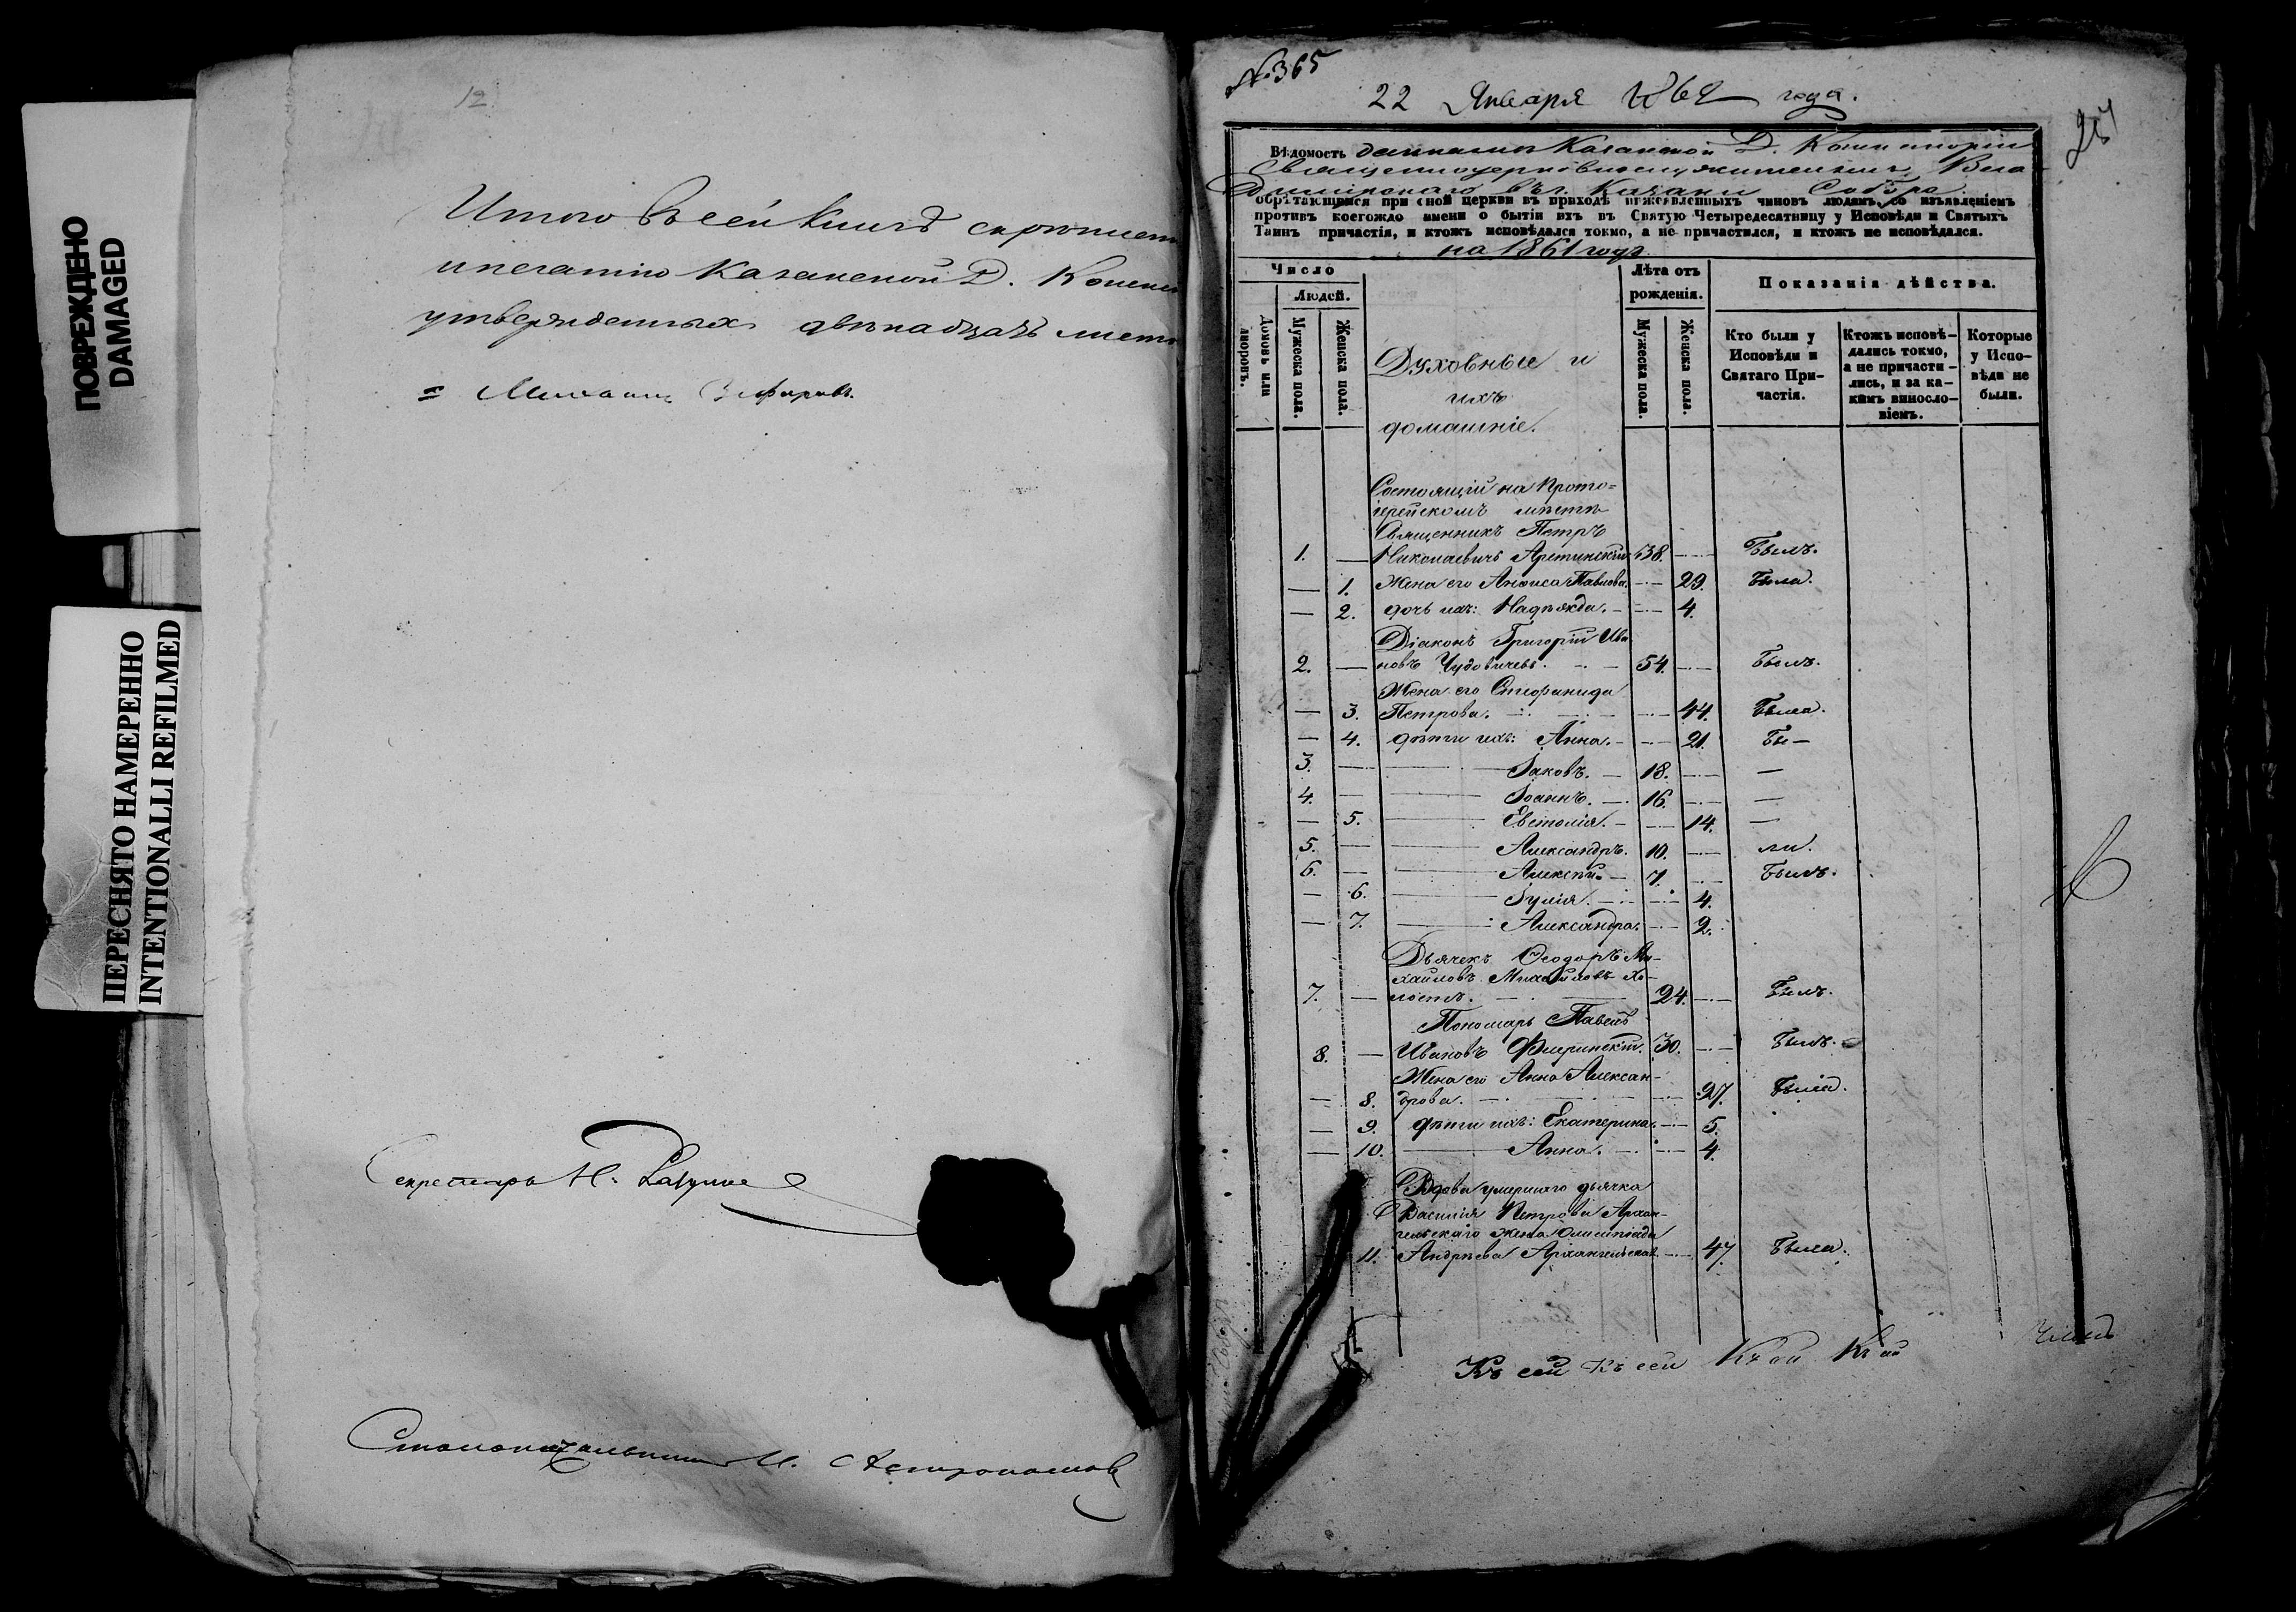 ПОВРЕЖДЕНО
DAMAGED
ПЕРЕСНЯТО НАМЕРЕННО
INTENTIONALLI REFILMED
12
Итого въ сей книгѣ скрѣпленн
и печатію Казанской Д. Конси
утвержденныхъ двѣнадцать лист
= Михаилъ Зефировъ.
Секретарь Н.
Столоначальникъ И. Астрономов
№ 365
22 Января 1862 года.
Вѣдомость данная изъ Казанской Д. Консисторіи
Священноцерковнослужителямъ Вла
димірскаго въ г. Казани Собора
обрѣтающимся при оной церкви въ приходѣ нижеявленныхъ чиновъ людямъ, со изъявленіемъ
противъ коегождо имени о бытіи ихъ въ Святую Четыредесятницу у Исповѣди и Святыхъ
Таинъ причастія, и ктожъ исповѣдался токмо, а не причастился, и ктожъ не исповѣдался.
на 1861 годъ.
Число
Людей.
Домовъ или дворовъ.
Мужеска пола.
Женска пола.
Духовные и
ихъ
домашніе.
Лѣта отъ
рожденія.
Мужеска пола.
Женска пола.
Показанія дѣйства.
Кто были у
Исповѣди и
Святаго При-
частія.
Ктожъ исповѣ-
дались токмо,
а не причасти-
лись, и за ка-
кимъ винословіемъ.
Которые
у Испо-
вѣди не
были.
Состоящій на Прото-
іерейскомъ мѣстѣ
Священникъ Петръ
1. — Николаевичъ Аретинскій 38. — Былъ.
— 1. Жена его Анфиса Павлова. — 29. Была.
— 2. дочь ихъ: Надежда. — 4.
Діаконъ Григорій Ива
2. — новъ Чудовичевъ. — 54. — Былъ.
Жена его Стефанида
— 3. Петрова. — 44. Была.
— 4. дѣти ихъ: Анна. — 21. Бы—
3. — Іаковъ. — 18. — —
4. — Іоаннъ. — 16. — —
— 5. Евтолія. — 14. —
5. — Александръ. 10. — ли.
6. — Алексѣй. — 7. — Былъ.
— 6. Іулія. — 4.
— 7. Александра. — 2.
Дьячекъ Ѳеодоръ Ми-
хайловъ Михайловъ хо-
7. — лостъ. — 24. — Былъ.
Пономарь Павелъ
8. — Ивановъ 30. — Былъ.
Жена его Анна Алексан-
— 8. дрова. — 27. Была.
— 9. дѣти ихъ: Екатерина. — 5.
— 10. Анна. — 4.
Вдова умершаго дьячка
Василія Петрова Архан-
гельскаго жена Олимпіада
— 11. Андрѣева Архангельская — 47. Была.
Къ сей Къ сей Къ ей Къ ей